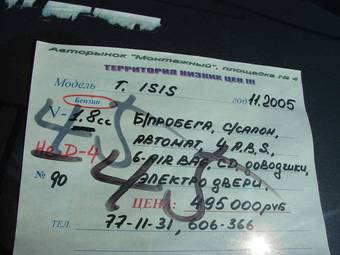 Авторынок "Монтажный", площадка № 4
ТЕРРИТОРИЯ НИЗКИХ ЦЕН !!!
Модель T. ISIS год 11.2005
Бензин
V- 1.8cc Б/ПРОБЕГА, С/САЛОН,
АВТОМАТ, 4 A.B.S,
Не D-4 6-AIR BAG, CD, ДОВОДЧИКИ,
№ 90 ЭЛЕКТРО ДВЕРИ.
45
45
ЦЕНА: 495000 РУБ
ТЕЛ. 77-11-31, 606-366